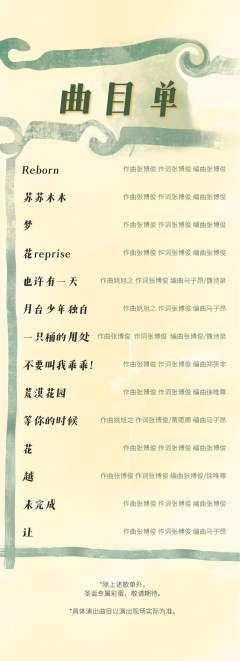 曲目单
Reborn 作曲张博俊 作词张博俊 编曲张博俊
苏苏木木 作曲张博俊 作词张博俊 编曲张博俊
梦 作曲张博俊 作词张博俊 编曲张博俊
花reprise 作曲张博俊 作词张博俊 编曲张博俊
也许有一天 作曲姚旭之 作词张博俊 编曲马子昂/魏诗泉
月台少年独白 作曲姚旭之 作词张博俊 编曲马子昂
一只桶的用处 作曲张博俊 作词张博俊 编曲张博俊/魏诗泉
不要叫我乖乖! 作曲张博俊 作词张博俊 编曲郑笑非
荒漠花园 作曲张博俊 作词张博俊 编曲徐唯尊
等你的时候 作曲姚旭之 作词张博俊/黄君卿 编曲马子昂
花 作曲张博俊 作词张博俊 编曲张博俊
越 作曲张博俊 作词张博俊 编曲张博俊/徐唯尊
未完成 作曲张博俊 作词张博俊 编曲张博俊
让 作曲张博俊 作词张博俊 编曲马子昂
*除上述歌单外，
圣诞专属彩蛋，敬请期待。
*具体演出曲目以演出现场实际为准。